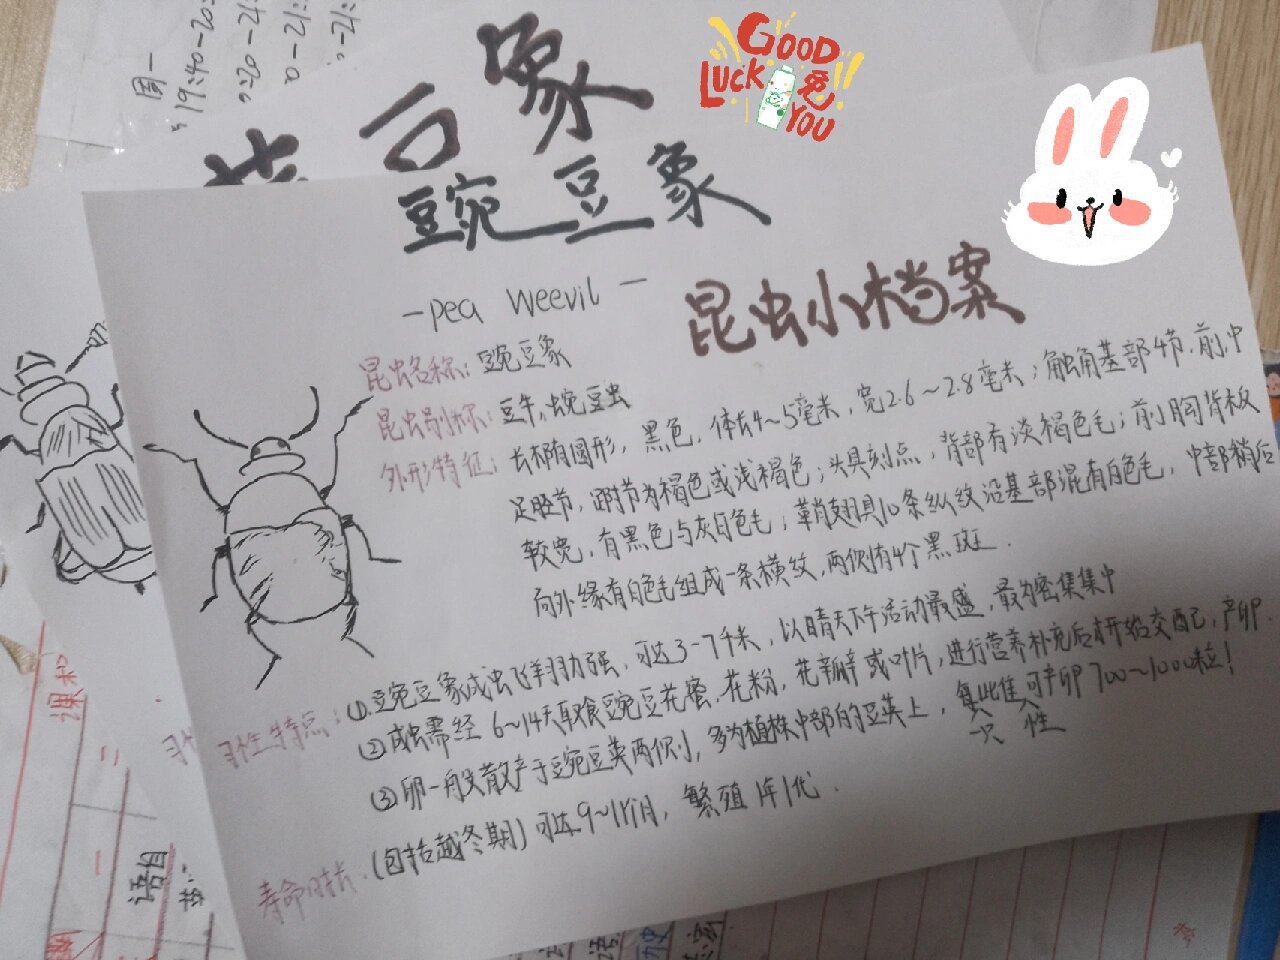 周一
19:40-20:
GOOD
LUCK
兔
YOU
豆象
豌豆象
-pea weevil-
昆虫小档案
昆虫名称：豌豆象
昆虫别称：豆牛、豌豆虫
外形特征：长椭圆形，黑色，体长4~5毫米，宽2.6~2.8毫米；触角基部4节，前、中
足胫节，跗节为褐色或浅褐色；头具刻点，背部有淡褐色毛；前胸背板
较宽，有黑色与灰白色毛；鞘翅具10条纵纹沿基部混有白色毛，中部稍后
向外缘有白色毛组成一条横纹，两侧有4个黑斑.
习性特点：①.豌豆象成虫飞翔力强，可达3-7千米，以晴天下午活动最盛，最为密集集中
②成虫需经6~14天取食豌豆花蜜、花粉，花瓣或叶片，进行营养补充后才开始交配，产卵.
③卵一般散产于豌豆荚两侧，多为植株中部的豆荚上，每只雌性可产卵700~1000粒！
寿命时长：(包括越冬期)可达9~11个月，繁殖1年1代.
课程
二
一
语自